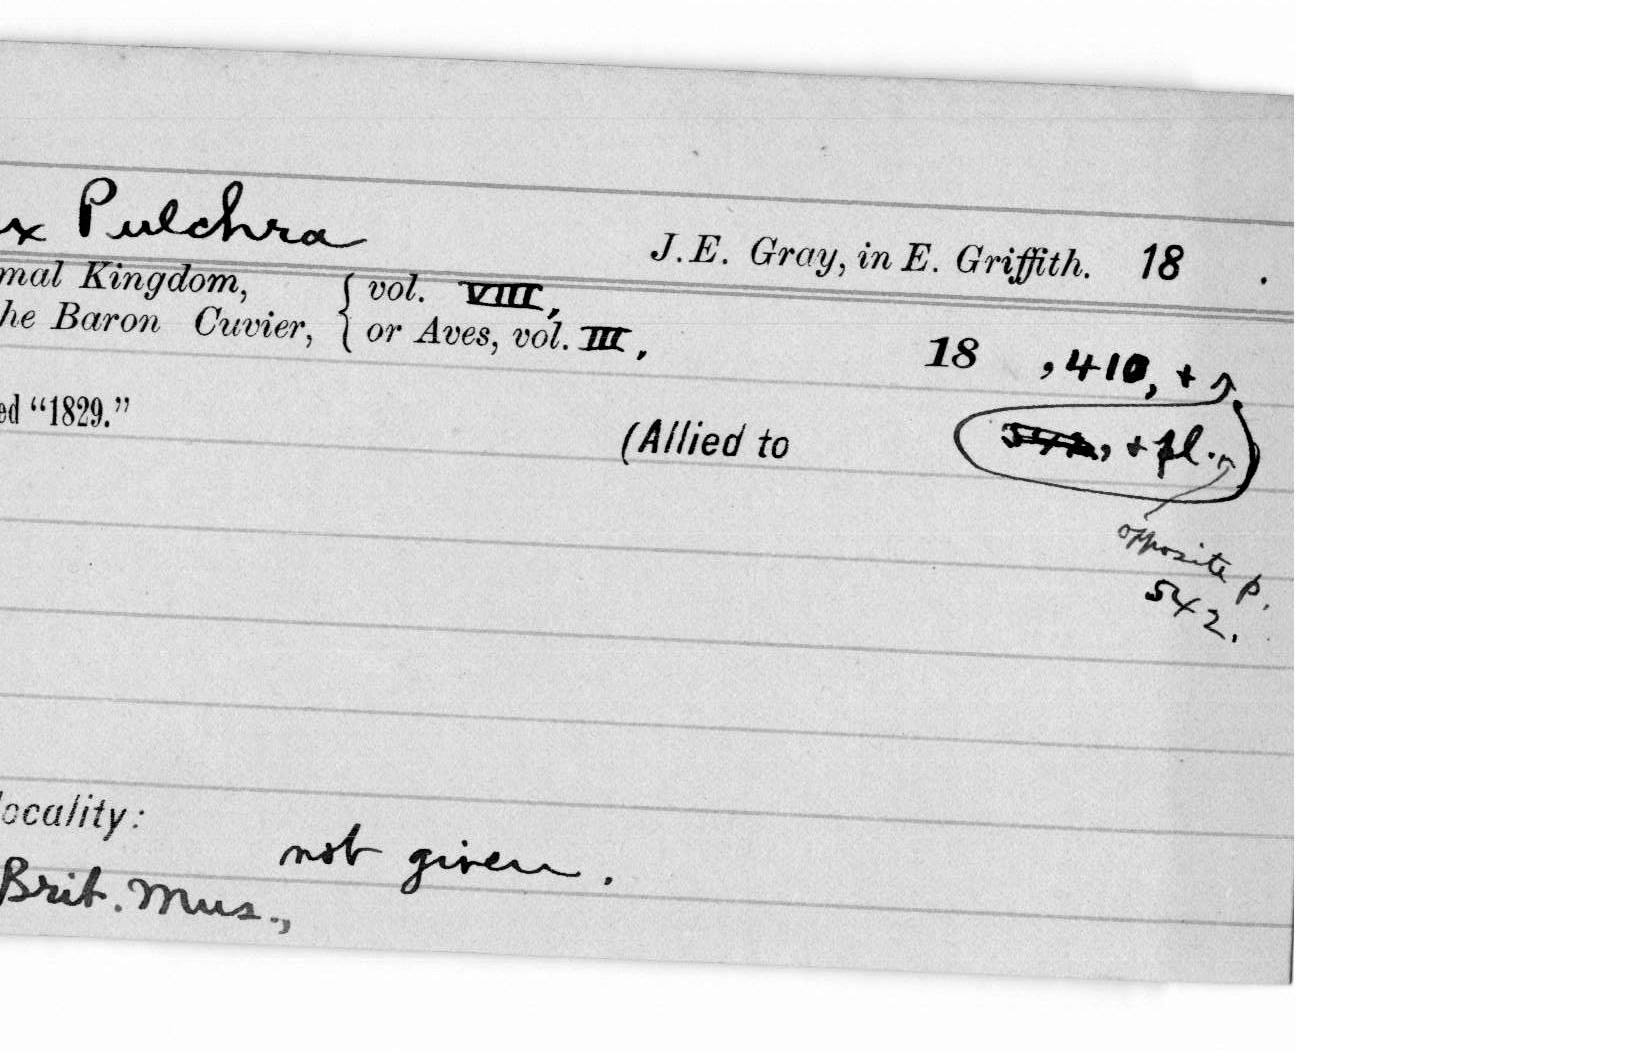 x Pulchra
J.E. Gray, in E. Griffith. 18 .
mal Kingdom, { vol. VIII,
he Baron Cuvier, { or Aves, vol. III,
18 , 410, +
ed “1829.”
(Allied to
, + pl. )
opposite p.
542.
locality:
not given.
Brit. Mus.,